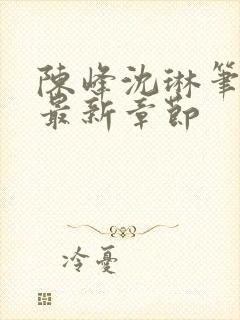 陳峰沈琳筆
最新章節
冷憂